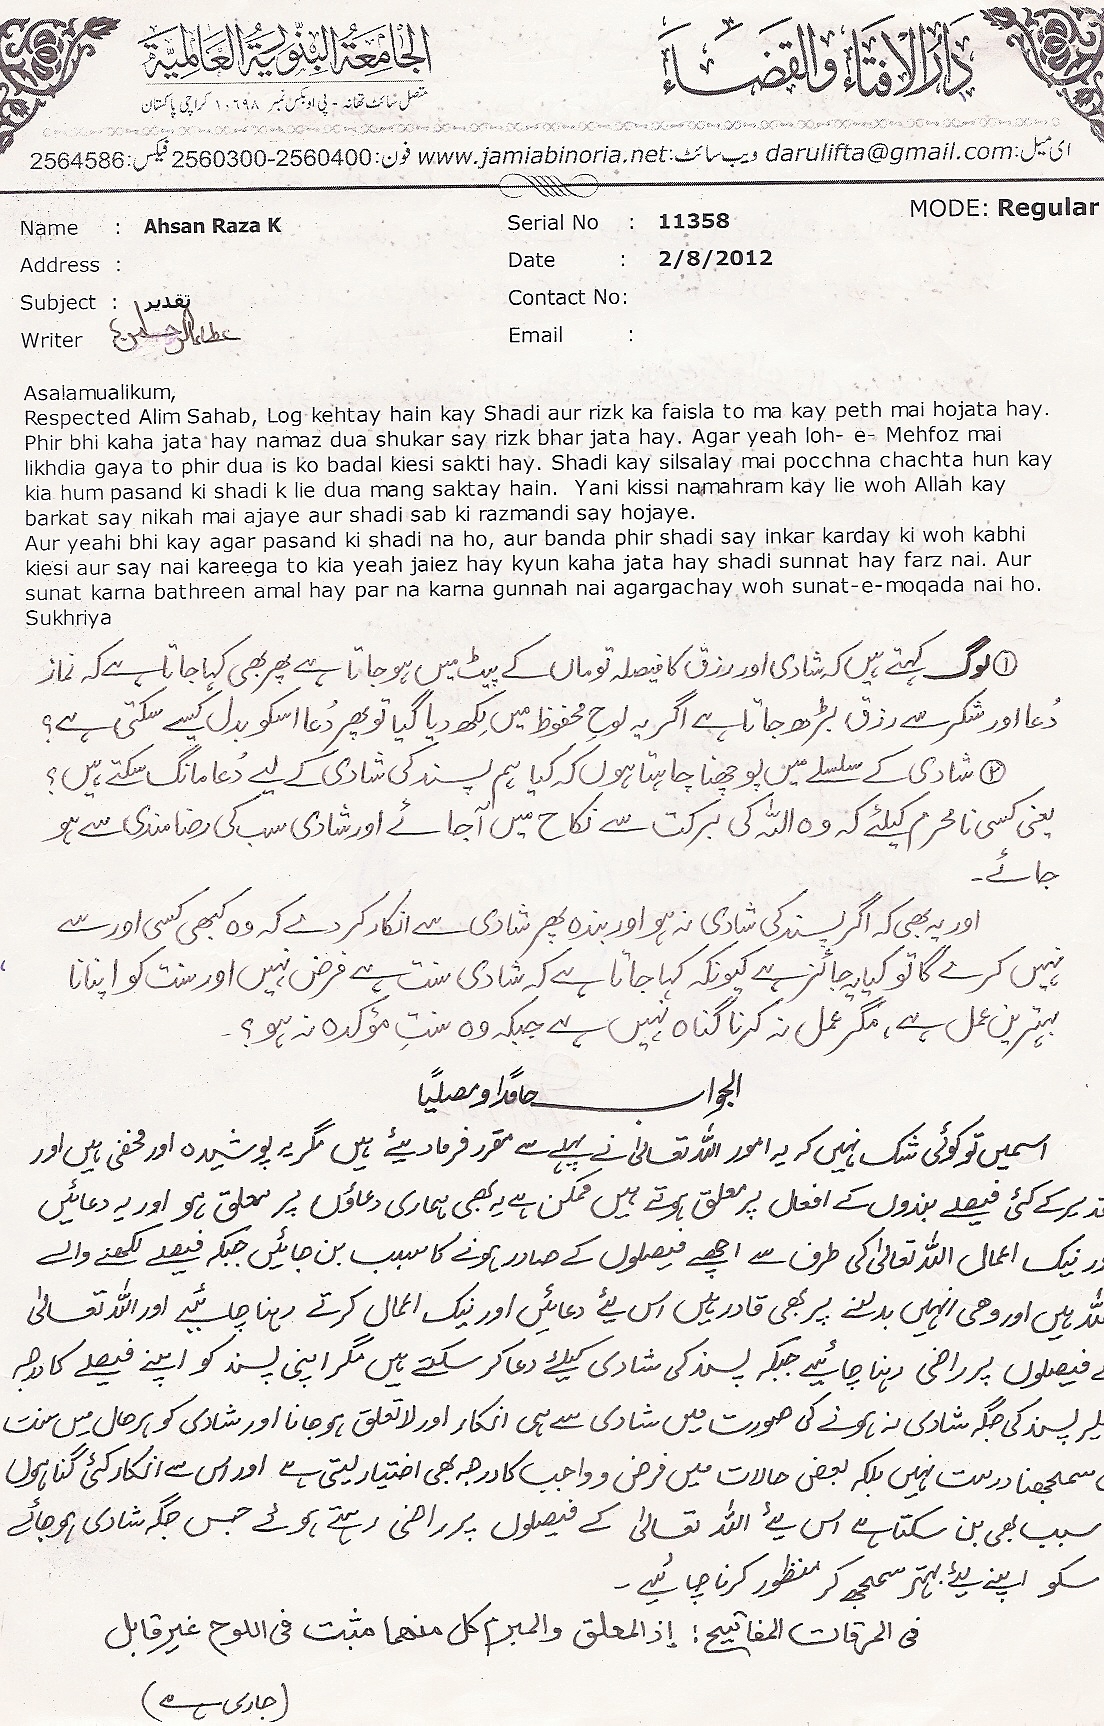 دار الافتاء والقضاء
الجامعة البنورية العالمية
متصل سائٹ تھانہ - پی او بکس نمبر ۱۰۶۹۸ کراچی پاکستان
ای میل:darulifta@gmail.com ویب سائٹ:www.jamiabinoria.net فون:2560300-2560400 فیکس:2564586
MODE: Regular
Name : Ahsan Raza K
Serial No : 11358
Address :
Date : 2/8/2012
Subject : تقدیر
Contact No:
Writer عطاء الرحمن
Email :
Asalamualikum,
Respected Alim Sahab, Log kehtay hain kay Shadi aur rizk ka faisla to ma kay peth mai hojata hay.
Phir bhi kaha jata hay namaz dua shukar say rizk bhar jata hay. Agar yeah loh- e- Mehfoz mai
likhdia gaya to phir dua is ko badal kiesi sakti hay. Shadi kay silsalay mai pocchna chachta hun kay
kia hum pasand ki shadi k lie dua mang saktay hain. Yani kissi namahram kay lie woh Allah kay
barkat say nikah mai ajaye aur shadi sab ki razmandi say hojaye.
Aur yeahi bhi kay agar pasand ki shadi na ho, aur banda phir shadi say inkar karday ki woh kabhi
kiesi aur say nai kareega to kia yeah jaiez hay kyun kaha jata hay shadi sunnat hay farz nai. Aur
sunat karna bathreen amal hay par na karna gunnah nai agargachay woh sunat-e-moqada nai ho.
Sukhriya
① لوگ کہتے ہیں کہ شادی اور رزق کا فیصلہ تو ماں کے پیٹ میں ہو جاتا ہے پھر بھی کہا جاتا ہے کہ نماز
دُعا اور شکر سے رزق بڑھ جاتا ہے اگر یہ لوحِ محفوظ میں لکھ دیا گیا تو پھر دُعا اسکو بدل کیسے سکتی ہے؟
② شادی کے سلسلے میں پوچھنا چاہتا ہوں کہ کیا ہم پسند کی شادی کے لیے دُعا مانگ سکتے ہیں؟
یعنی کسی نامحرم کیلئے کہ وہ اللہ کی برکت سے نکاح میں آجائے اور شادی سب کی رضامندی سے ہو
جائے۔
اور یہ بھی کہ اگر پسند کی شادی نہ ہو اور بندہ پھر شادی سے انکار کر دے کہ وہ کبھی کسی اور سے
نہیں کرے گا تو کیا یہ جائز ہے کیونکہ کہا جاتا ہے کہ شادی سنت ہے فرض نہیں اور سنت کو اپنانا
بہترین عمل ہے، مگر عمل نہ کرنا گناہ نہیں ہے جبکہ وہ سنتِ مؤکدہ نہ ہو؟۔
الجواب حامدًا ومصلیًا
اسمیں تو کوئی شک نہیں کہ یہ امور اللہ تعالیٰ نے پہلے سے مقرر فرما دیئے ہیں مگر یہ پوشیدہ اور مخفی ہیں اور
تقدیر کے کئی فیصلے بندوں کے افعال پر معلق ہوتے ہیں ممکن ہے یہ بھی ہماری دعاؤں پر معلق ہو اور یہ دعائیں
اور نیک اعمال اللہ تعالیٰ کی طرف سے اچھے فیصلوں کے صادر ہونے کا سبب بن جائیں جبکہ فیصلے لکھنے والے
اللہ ہیں اور وہی انہیں بدلنے پر بھی قادر ہیں اس لیئے دعائیں اور نیک اعمال کرتے رہنا چاہیئے اور اللہ تعالیٰ
کے فیصلوں پر راضی رہنا چاہیئے جبکہ پسند کی شادی کیلئے دعا کر سکتے ہیں مگر اپنی پسند کو اپنے فیصلے کا درجہ
پسند کی جگہ شادی نہ ہونے کی صورت میں شادی سے ہی انکار اور لاتعلق ہو جانا اور شادی کو ہر حال میں سنت
سمجھنا درست نہیں بلکہ بعض حالات میں فرض و واجب کا درجہ بھی اختیار لیتی ہے اور اس سے انکار کئی گناہوں
سبب بھی بن سکتا ہے اس لیئے اللہ تعالیٰ کے فیصلوں پر راضی رہتے ہوئے جس جگہ شادی ہو جائے
سکو اپنے لیئے بہتر سمجھ کر منظور کرنا چاہیئے۔
فی المرقات المفاتیح: إذ المعلق والمبرم کل منھما مثبت فی اللوح غیر قابل
(جاری ہے)